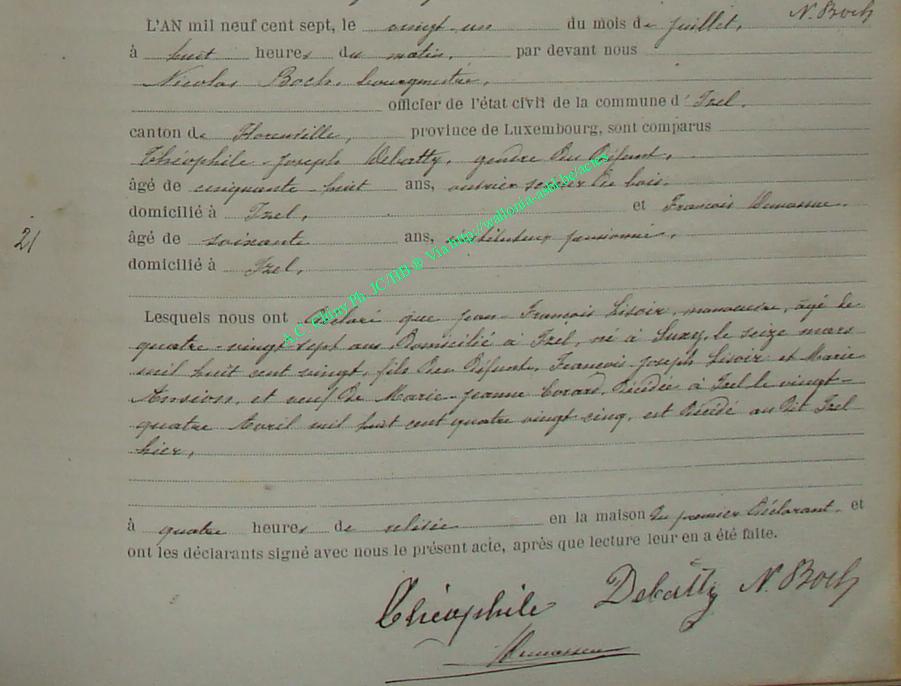 N. Boch
L'AN mil neuf cent sept, le vingt-un du mois de juillet,
à huit heures du matin, par devant nous
Nicolas Boch, bourgmestre,
officier de l'état civil de la commune d'Izel,
canton de Florenville, province de Luxembourg, sont comparus
Théophile-Joseph Debatty, gendre du défunt,
âgé de cinquante-huit ans, ouvrier scieur de bois,
domicilié à Izel, et François
âgé de soixante ans, instituteur pensionné,
domicilié à Izel,
21
Lesquels nous ont déclaré que Jean-François Lisoir, manoeuvre, âgé de
quatre-vingt-sept ans, domicilié à Izel, né à Suxy, le seize mars
mil huit cent vingt, fils des défunts, François-Joseph Lisoir et Marie
Ansion, et veuf de Marie-Jeanne Evrard, décédée à Izel le vingt-
quatre Avril mil huit cent quatre vingt cinq, est décédé au dit Izel
hier,
à quatre heures de relevée en la maison du premier déclarant, et
ont les déclarants signé avec nous le présent acte, après que lecture leur en a été faite.
Théophile Debatty N. Boch
A.C. Chiny Ph. JC/HB @ Via http://wallonia-asbl.be/actes